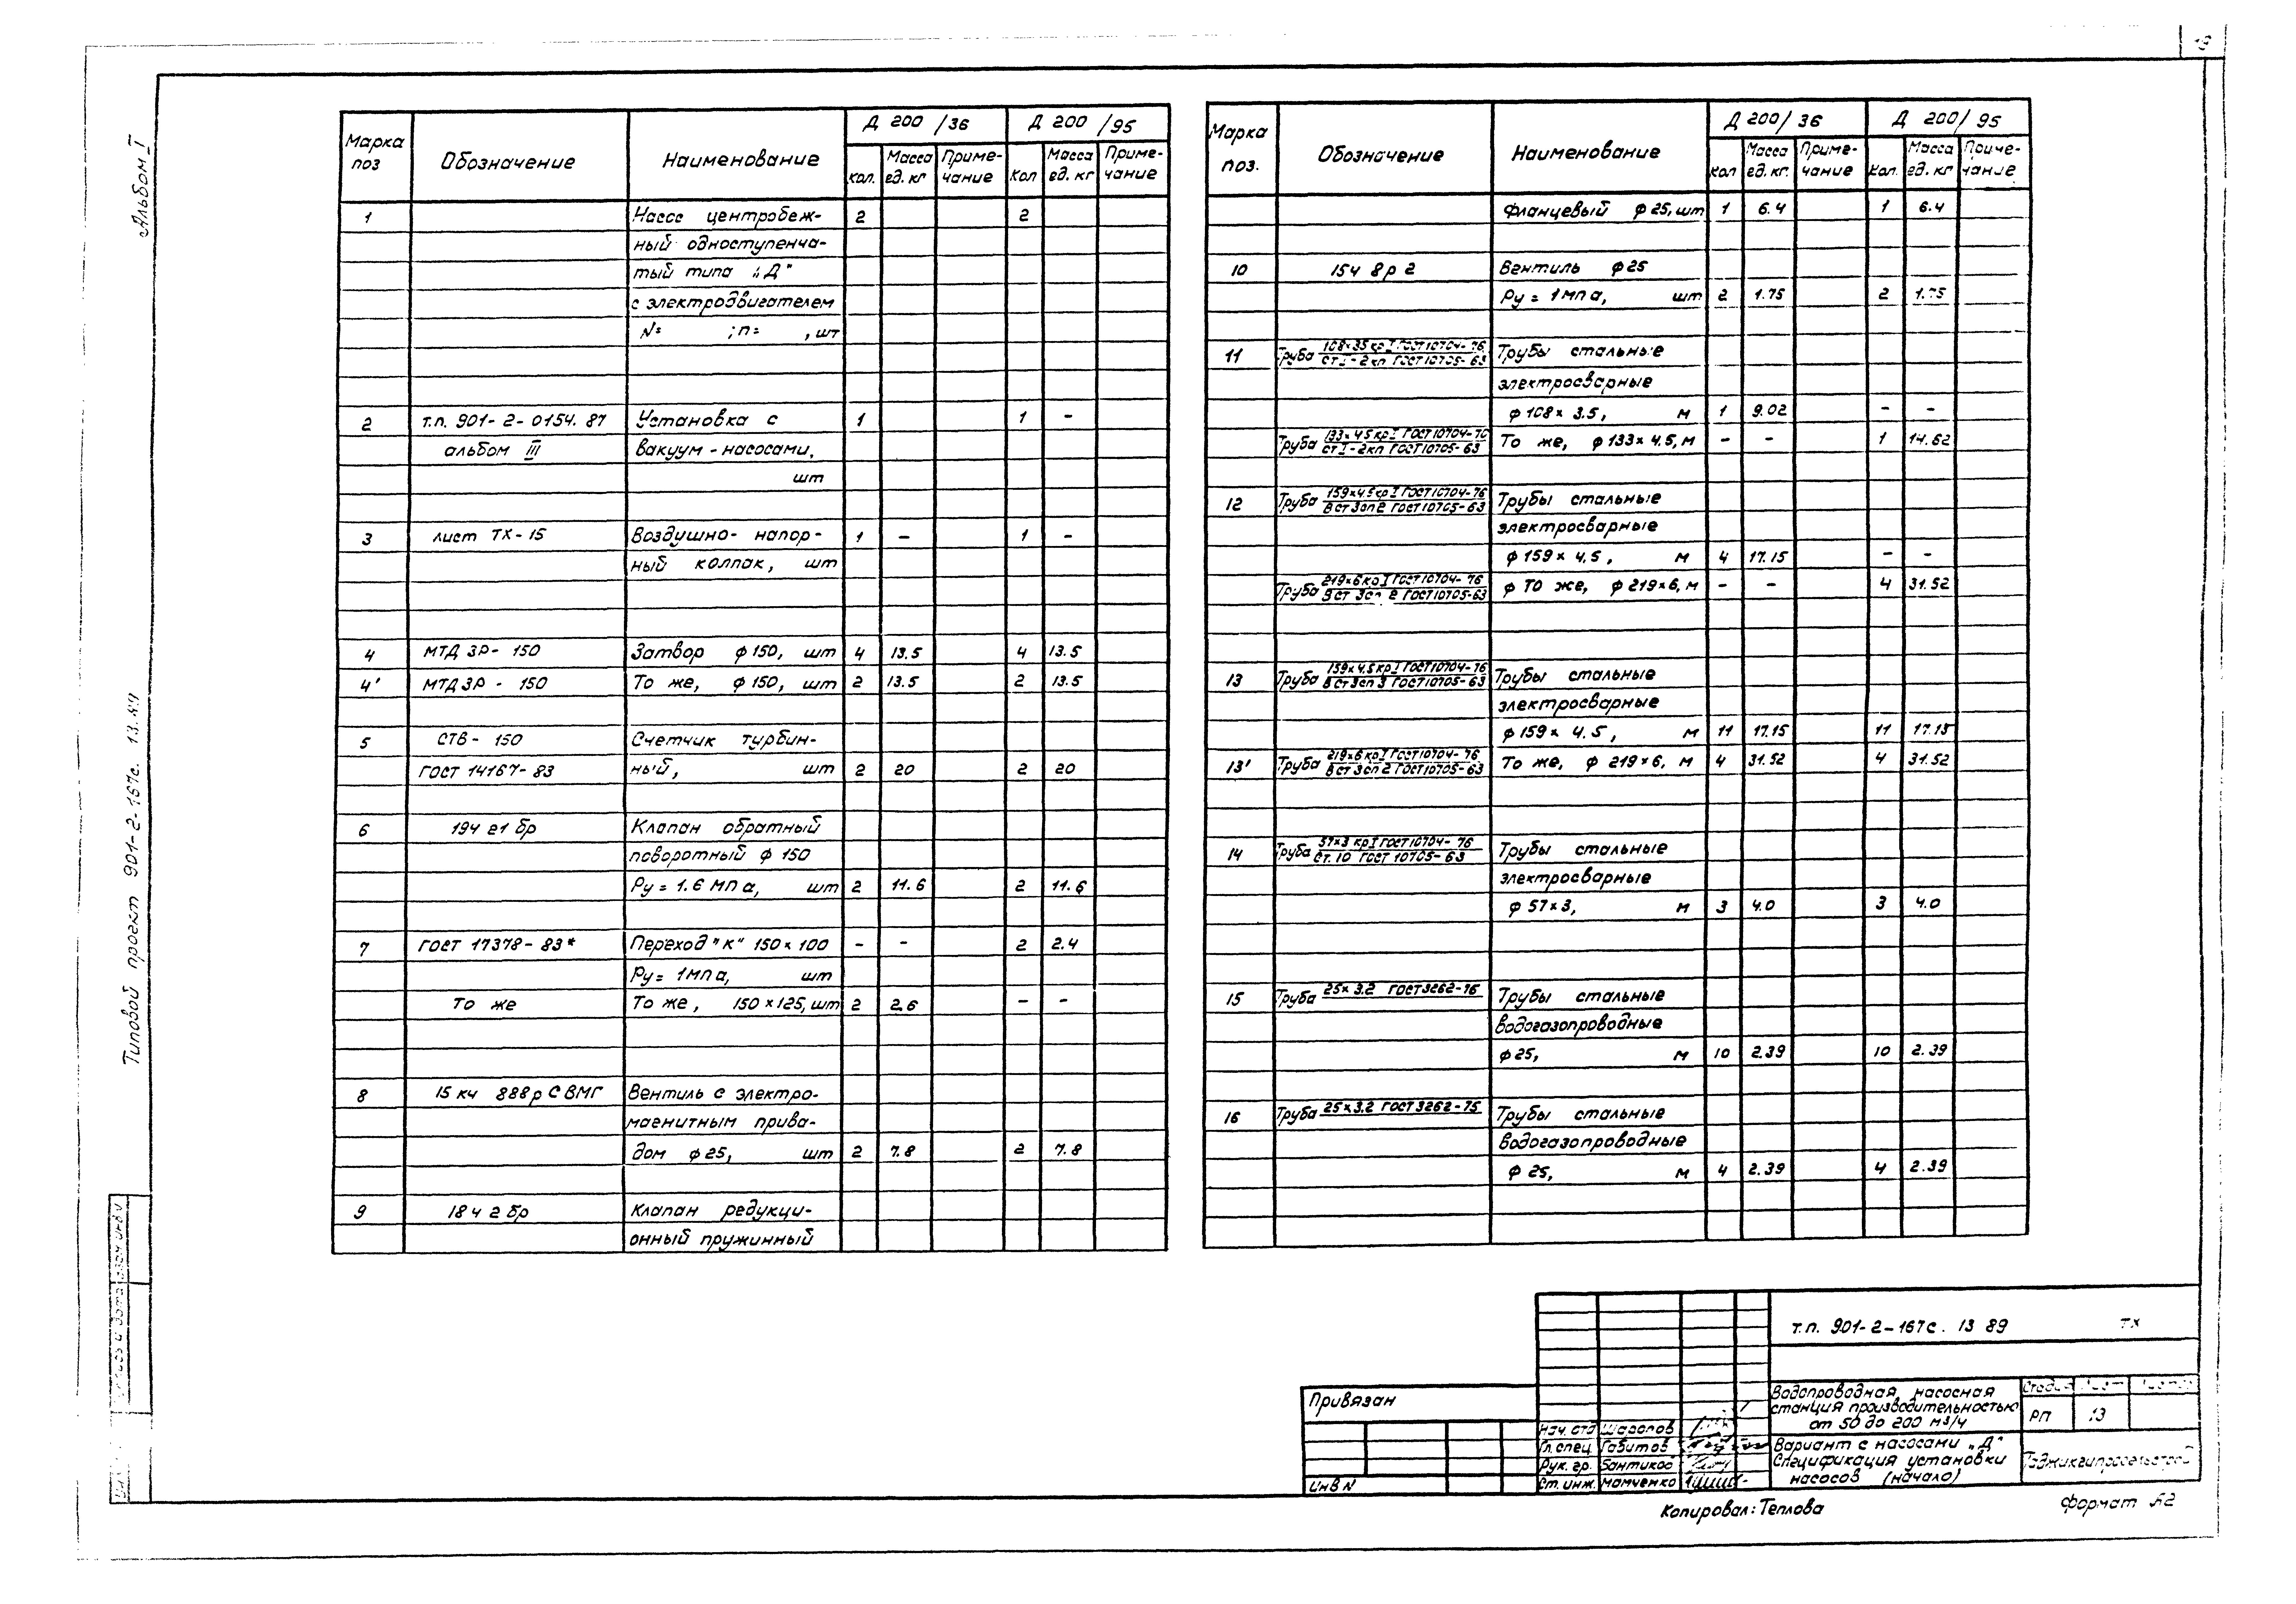 Альбом I
Типовой проект 901-2-167с. 13.89
Марка поз
Обозначение
Наименование
Д 200/36
Д 200/95
кол.
Масса ед. кг
Примечание
Кол
Масса ед. кг
Примечание
1 Насос центробеж- 2 2
ный одноступенча-
тый типа „Д"
с электродвигателем
N= ; n= , шт
2 т.п. 901-2-0154.87 Установка с 1 1 -
альбом III вакуум-насосами,
шт
3 лист ТХ-15 Воздушно-напор- 1 - 1 -
ный колпак, шт
4 МТД ЗР-150 Затвор ф150, шт 4 13.5 4 13.5
4' МТД ЗР-150 То же, ф150, шт 2 13.5 2 13.5
5 СТВ-150 Счетчик турбин-
ГОСТ 14167-83 ный, шт 2 20 2 20
6 19ч 21 бр Клапан обратный
поворотный ф 150
Ру = 1.6 МПа, шт 2 11.6 2 11.6
7 ГОСТ 17378-83* Переход "К" 150×100 - - 2 2.4
Ру = 1МПа, шт
То же То же, 150×125, шт 2 2.6 - -
8 15 кч 888р СВМГ Вентиль с электро-
магнитным приво-
дом ф25, шт 2 7.8 2 7.8
9 18ч 2 бр Клапан редукци-
онный пружинный
Марка поз.
Обозначение
Наименование
Д 200/36
Д 200/95
Кол
Масса ед. кг.
Примечание
Кол.
Масса ед. кг
Примечание
Фланцевый ф25, шт 1 6.4 1 6.4
10 15ч 8р2 Вентиль ф25
Ру = 1МПа, шт 2 1.75 2 1.75
11 Труба 108×35 кр I ГОСТ10704-76 Трубы стальные
Ст I-2кп ГОСТ10705-63
электросварные
ф108×3.5, м 1 9.02 - -
Труба 133×45 кр I ГОСТ10704-76 То же, ф133×4.5, м - - 1 14.62
Ст I-2кп ГОСТ10705-63
12 Труба 159×4.5 кр I ГОСТ10704-76 Трубы стальные
В ст 3сп 2 ГОСТ10705-63
электросварные
ф159×4.5, м 4 17.15 - -
Труба 219×6 кр I ГОСТ10704-76 ф То же, ф219×6, м - - 4 31.52
В ст 3сп 2 ГОСТ10705-63
13 Труба 159×4.5 кр I ГОСТ10704-76 Трубы стальные
В ст 3сп 3 ГОСТ10705-63
электросварные
ф159×4.5, м 11 17.15 11 17.15
13' Труба 219×6 кр I ГОСТ10704-76 То же, ф 219×6, м 4 31.52 4 31.52
В ст 3сп 2 ГОСТ10705-63
14 Труба 57×3 кр I ГОСТ10704-76 Трубы стальные
Ст. 10 ГОСТ 10705-63
электросварные
ф 57×3, м 3 4.0 3 4.0
15 Труба 25×3.2 ГОСТ3262-76 Трубы стальные
водогазопроводные
ф25, м 10 2.39 10 2.39
16 Труба 25×3.2 ГОСТ3262-75 Трубы стальные
водогазопроводные
ф 25, м 4 2.39 4 2.39
т.п. 901-2-167с. 13 89 ТХ
Привязан
Инв N
Нач. отд Шаропов
Гл. спец Габитов
Рук. гр.
Ст. инж. Мамченко
Водопроводная насосная
станция производительностью
от 50 до 200 м³/ч
Стадия Лист Листов
РП 13
Вариант с насосами „Д"
Спецификация установки
насосов (начало)
Таджикгипросельстрой
Копировал: Теплова
Формат А2